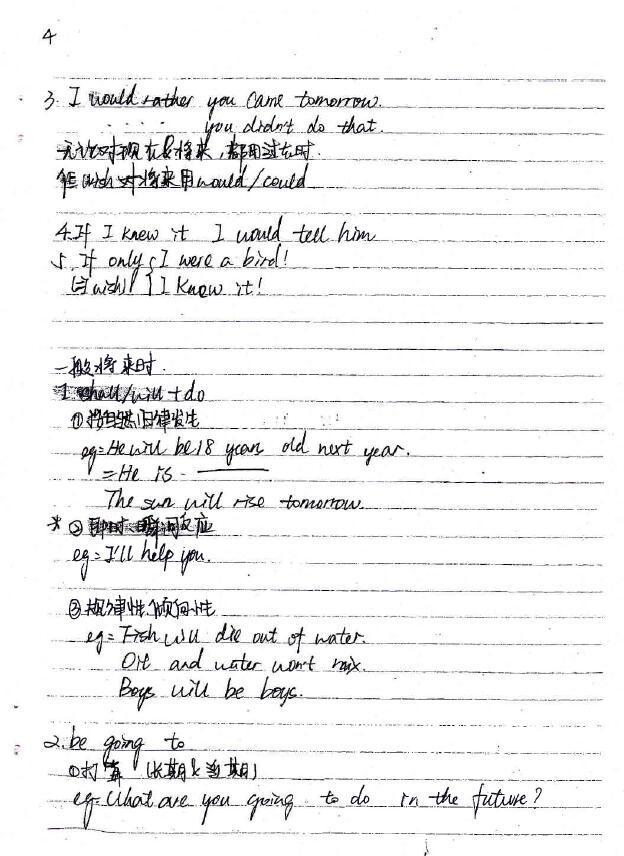 4
3. I would rather you came tomorrow.
. . . . you didn't do that.
无论对现在&将来,都用过去时.
但wish 对将来用would/could
4. If I knew it I would tell him
5. If only { I were a bird!
(=I wish) { I knew it!
一般将来时.
1. shall/will + do
①按自然规律发生
eg= He will be 18 years old next year.
= He is ———
The sun will rise tomorrow.
* ② 即时 瞬间反应
eg= I'll help you.
③规律性、倾向性
eg= Fish will die out of water.
Oil and water won't mix.
Boys will be boys.
2. be going to
①打算 (长期&当期)
eg= What are you going to do in the future?